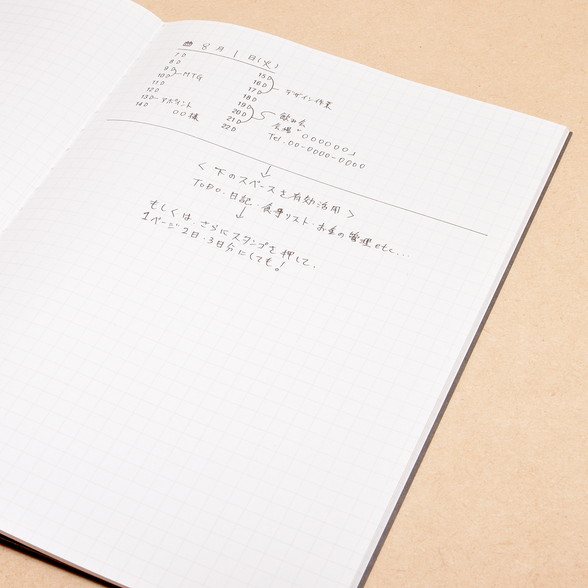 8月1日(火)
7
8
9
10 MTG
11
12
13 アポイント
14 〇〇様
15
16
17 デザイン作業
18
19
20 飲み会
21 会場「〇〇〇〇〇〇」
22 Tel.00-0000-0000
↓
< 下のスペースを有効活用 >
ToDo・日記・食事リスト・お金の管理etc...
↓
もしくは、さらにスタンプを押して、
1ページ2日・3日分にしても!